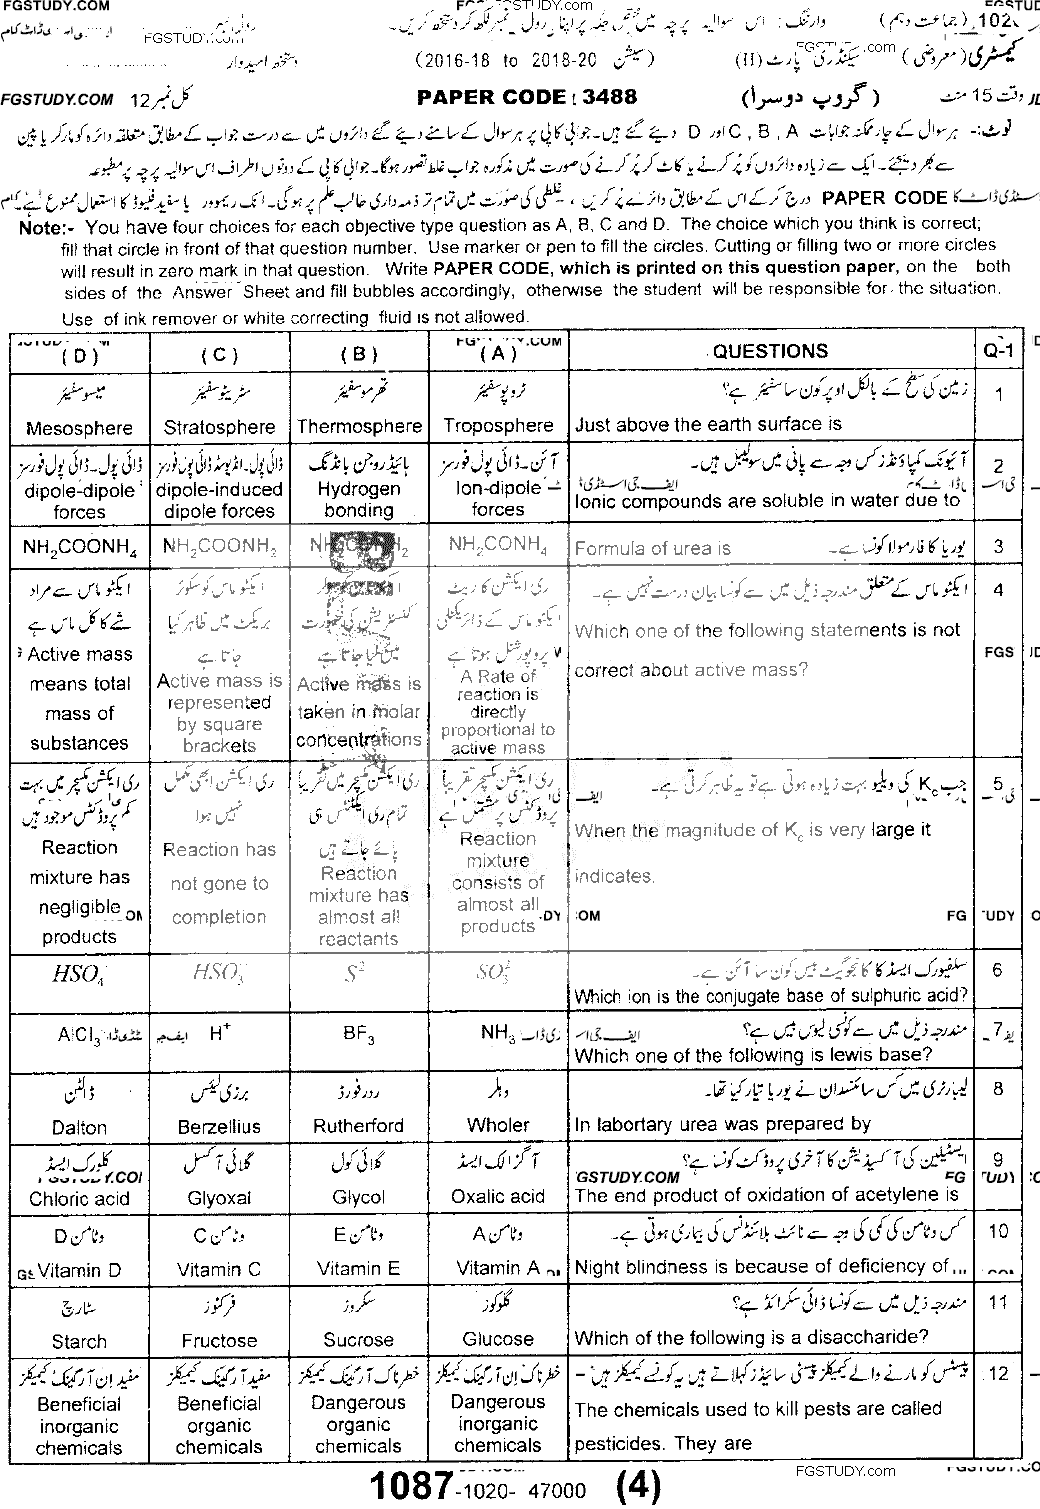 FGSTUDY.COM
1020 (جماعت دہم) وارننگ: اس سوالیہ پرچہ میں مختص جگہ پر اپنا رول نمبر لکھ کر دستخط کریں۔
FGSTUDY.COM
کیمسٹری (معروضی) سیکنڈری پارٹ (II) (سیشن 2016-18 to 2018-20) دستخط امیدوار
FGSTUDY.com
وقت 15 منٹ (گروپ دوسرا) PAPER CODE: 3488 کل نمبر 12 FGSTUDY.COM
نوٹ:- ہر سوال کے چار ممکنہ جوابات A , B , C اور D دیئے گئے ہیں۔ جوابی کاپی پر ہر سوال کے سامنے دیئے گئے دائروں میں سے درست جواب کے مطابق متعلقہ دائرہ کو مارکر یا پین
سے بھر دیجئے۔ ایک سے زیادہ دائروں کو پُر کرنے یا کاٹ کر پُر کرنے کی صورت میں مذکورہ جواب غلط تصور ہوگا۔ جوابی کاپی کے دونوں اطراف اس سوالیہ پرچہ پر مطبوعہ
PAPER CODE درج کر کے اس کے مطابق دائرے پُر کریں ، غلطی کی صورت میں تمام تر ذمہ داری طالب علم پر ہوگی۔ انک ریموور یا سفید فلیوڈ کا استعمال ممنوع ہے۔
Note:- You have four choices for each objective type question as A, B, C and D. The choice which you think is correct;
fill that circle in front of that question number. Use marker or pen to fill the circles. Cutting or filling two or more circles
will result in zero mark in that question. Write PAPER CODE, which is printed on this question paper, on the both
sides of the Answer Sheet and fill bubbles accordingly, otherwise the student will be responsible for the situation.
Use of ink remover or white correcting fluid is not allowed.
(D) (C) (B) (A) QUESTIONS Q-1
میسوسفیئر سٹریٹوسفیئر تھرموسفیئر ٹروپوسفیئر زمین کی سطح کے بالکل اوپر کون سا سفیئر ہے؟ 1
Mesosphere Stratosphere Thermosphere Troposphere Just above the earth surface is
ڈائی پول۔ڈائی پول فورسز ڈائی پول۔انڈیوسڈ ڈائی پول فورسز ہائیڈروجن بانڈنگ آئن۔ڈائی پول فورسز آئیونک کمپاؤنڈز کس وجہ سے پانی میں سولیبل ہیں۔ 2
dipole-dipole dipole-induced Hydrogen Ion-dipole Ionic compounds are soluble in water due to
forces dipole forces bonding forces
NH₂COONH₄ NH₂COONH₂ NH₂CONH₄ Formula of urea is یوریا کا فارمولا کونسا ہے۔ 3
ایکٹو ماس سے مراد ایکٹو ماس کو سکوئر ری ایکشن کا ریٹ ایکٹو ماس کے متعلق مندرجہ ذیل میں سے کونسا بیان درست نہیں ہے۔ 4
شے کا کل ماس ہے بریکٹ میں ظاہر کیا کنسنٹریشن کی صورت ایکٹو ماس کے ڈائریکٹلی Which one of the following statements is not
جاتا ہے میں لیا جاتا ہے پروپورشنل ہوتا ہے correct about active mass?
Active mass Active mass is Active mass is A Rate of
means total represented taken in molar reaction is
mass of by square concentrations directly
substances brackets proportional to
active mass
ری ایکشن مکسچر میں بہت ری ایکشن ابھی مکمل ری ایکشن مکسچر میں تقریباً ری ایکشن مکسچر تقریباً جب Kc کی ویلیو بہت زیادہ ہوتی ہے تو یہ ظاہر کرتی ہے۔ 5
کم پروڈکٹس موجود ہیں نہیں ہوا تمام ری ایکٹنٹس ہی پروڈکٹس پر مشتمل ہے When the magnitude of Kc is very large it
پائے جاتے ہیں indicates.
Reaction Reaction has Reaction Reaction
mixture has not gone to mixture has mixture
negligible completion almost all consists of
products reactants almost all
products
HSO₄⁻ HSO₃⁻ S² SO₄² سلفیورک ایسڈ کا کانجوگیٹ بیس کون سا آئن ہے۔ 6
Which ion is the conjugate base of sulphuric acid?
AlCl₃ H⁺ BF₃ NH₃ مندرجہ ذیل میں سے کونسی لیوس بیس ہے؟ 7
Which one of the following is lewis base?
ڈالٹن برزی لیئس ردرفورڈ وہلر لیبارٹری میں کس سائنسدان نے یوریا تیار کیا تھا۔ 8
Dalton Berzellius Rutherford Wholer In labortary urea was prepared by
کلورک ایسڈ گلائی آکسل گلائی کول آگزالک ایسڈ ایسٹیلین کی آکسیڈیشن کا آخری پروڈکٹ کونسا ہے؟ 9
GSTUDY.COM
Chloric acid Glyoxal Glycol Oxalic acid The end product of oxidation of acetylene is
وٹامن D وٹامن C وٹامن E وٹامن A کس وٹامن کی کمی کی وجہ سے نائٹ بلائنڈنس کی بیماری ہوتی ہے۔ 10
Vitamin D Vitamin C Vitamin E Vitamin A Night blindness is because of deficiency of
سٹارچ فرکٹوز سکروز گلوکوز مندرجہ ذیل میں سے کونسا ڈائی سکرائڈ ہے؟ 11
Starch Fructose Sucrose Glucose Which of the following is a disaccharide?
مفید ان آرگینک کیمیکلز مفید آرگینک کیمیکلز خطرناک آرگینک کیمیکلز خطرناک ان آرگینک کیمیکلز پیسٹس کو مارنے والے کیمیکلز پیسٹی سائیڈز کہلاتے ہیں یہ کونسے کیمیکلز ہیں۔ 12
Beneficial Beneficial Dangerous Dangerous The chemicals used to kill pests are called
inorganic organic organic inorganic pesticides. They are
chemicals chemicals chemicals chemicals
1087-1020- 47000 (4) FGSTUDY.com